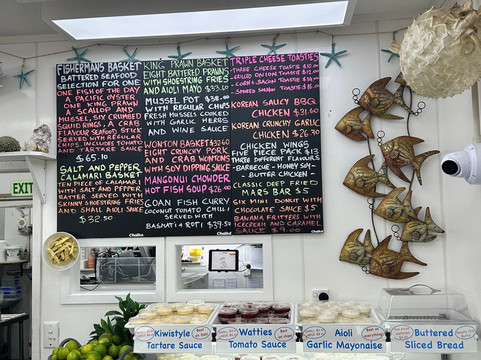 FISHERMANS BASKET
BATTERED SEAFOOD
SELECTION FOR ONE
ONE FISH OF THE DAY
A PACIFIC OYSTER
ONE KING PRAWN
A SCALLOP AND
MUSSEL, SIX CRUMBED
SQUID RINGS, A CRAB
FLAVOUR SEAFOOD STICK
SERVED WITH REGULAR
CHIPS, INCLUDES TOMATO
OR TARTARE SAUCE
$65.10
SALT AND PEPPER
CALAMARI BASKET
TEN PIECE OF CALAMARI
WITH SALT AND PEPPER
BATTER SERVED WITH
SKINNY SHOESTRING FRIES
AND SMALL AIOLI SAUCE
$32.50
KING PRAWN BASKET
EIGHT BATTERED PRAWNS
WITH SHOESTRING FRIES
AND AIOLI MAYO
MUSSEL POT $38
WITH REGULAR CHIPS
FRESH MUSSELS COOKED
WITH GARLIC HERBS
AND WINE SAUCE
WONTON BASKET $32.60
EIGHT CRUNCHY PORK
AND CRAB WONTONS
WITH SOY DIPPING SAUCE
MANGONUI CHOWDER
HOT FISH SOUP $26.00
GOAN FISH CURRY
COCONUT TOMATO CHILLI
SERVED WITH
BASMATI & ROTI $39.50
TRIPLE CHEESE TOASTIES
- THREE CHEESE TOASTS
KOREAN SAUCY BBQ
CHICKEN $31.60
KOREAN CRUNCHY GARLIC
CHICKEN $26.30
CHICKEN WINGS
FIVE PIECE PACK $13
THREE DIFFERENT FLAVOURS
- BARBECUE - HONEY SOY -
- BUTTER CHICKEN -
CLASSIC DEEP FRIED
MARS BAR $5
SIX MINI DONUT WITH
CHOCOLATE SAUCE $5
BANANA FRITTERS WITH
ICECREAM AND CARAMEL
SAUCE $9.00
EXIT
Kiwistyle
Tartare Sauce
Watties
Tomato Sauce
Aioli
Garlic Mayonaise
Buttered
Sliced Bread